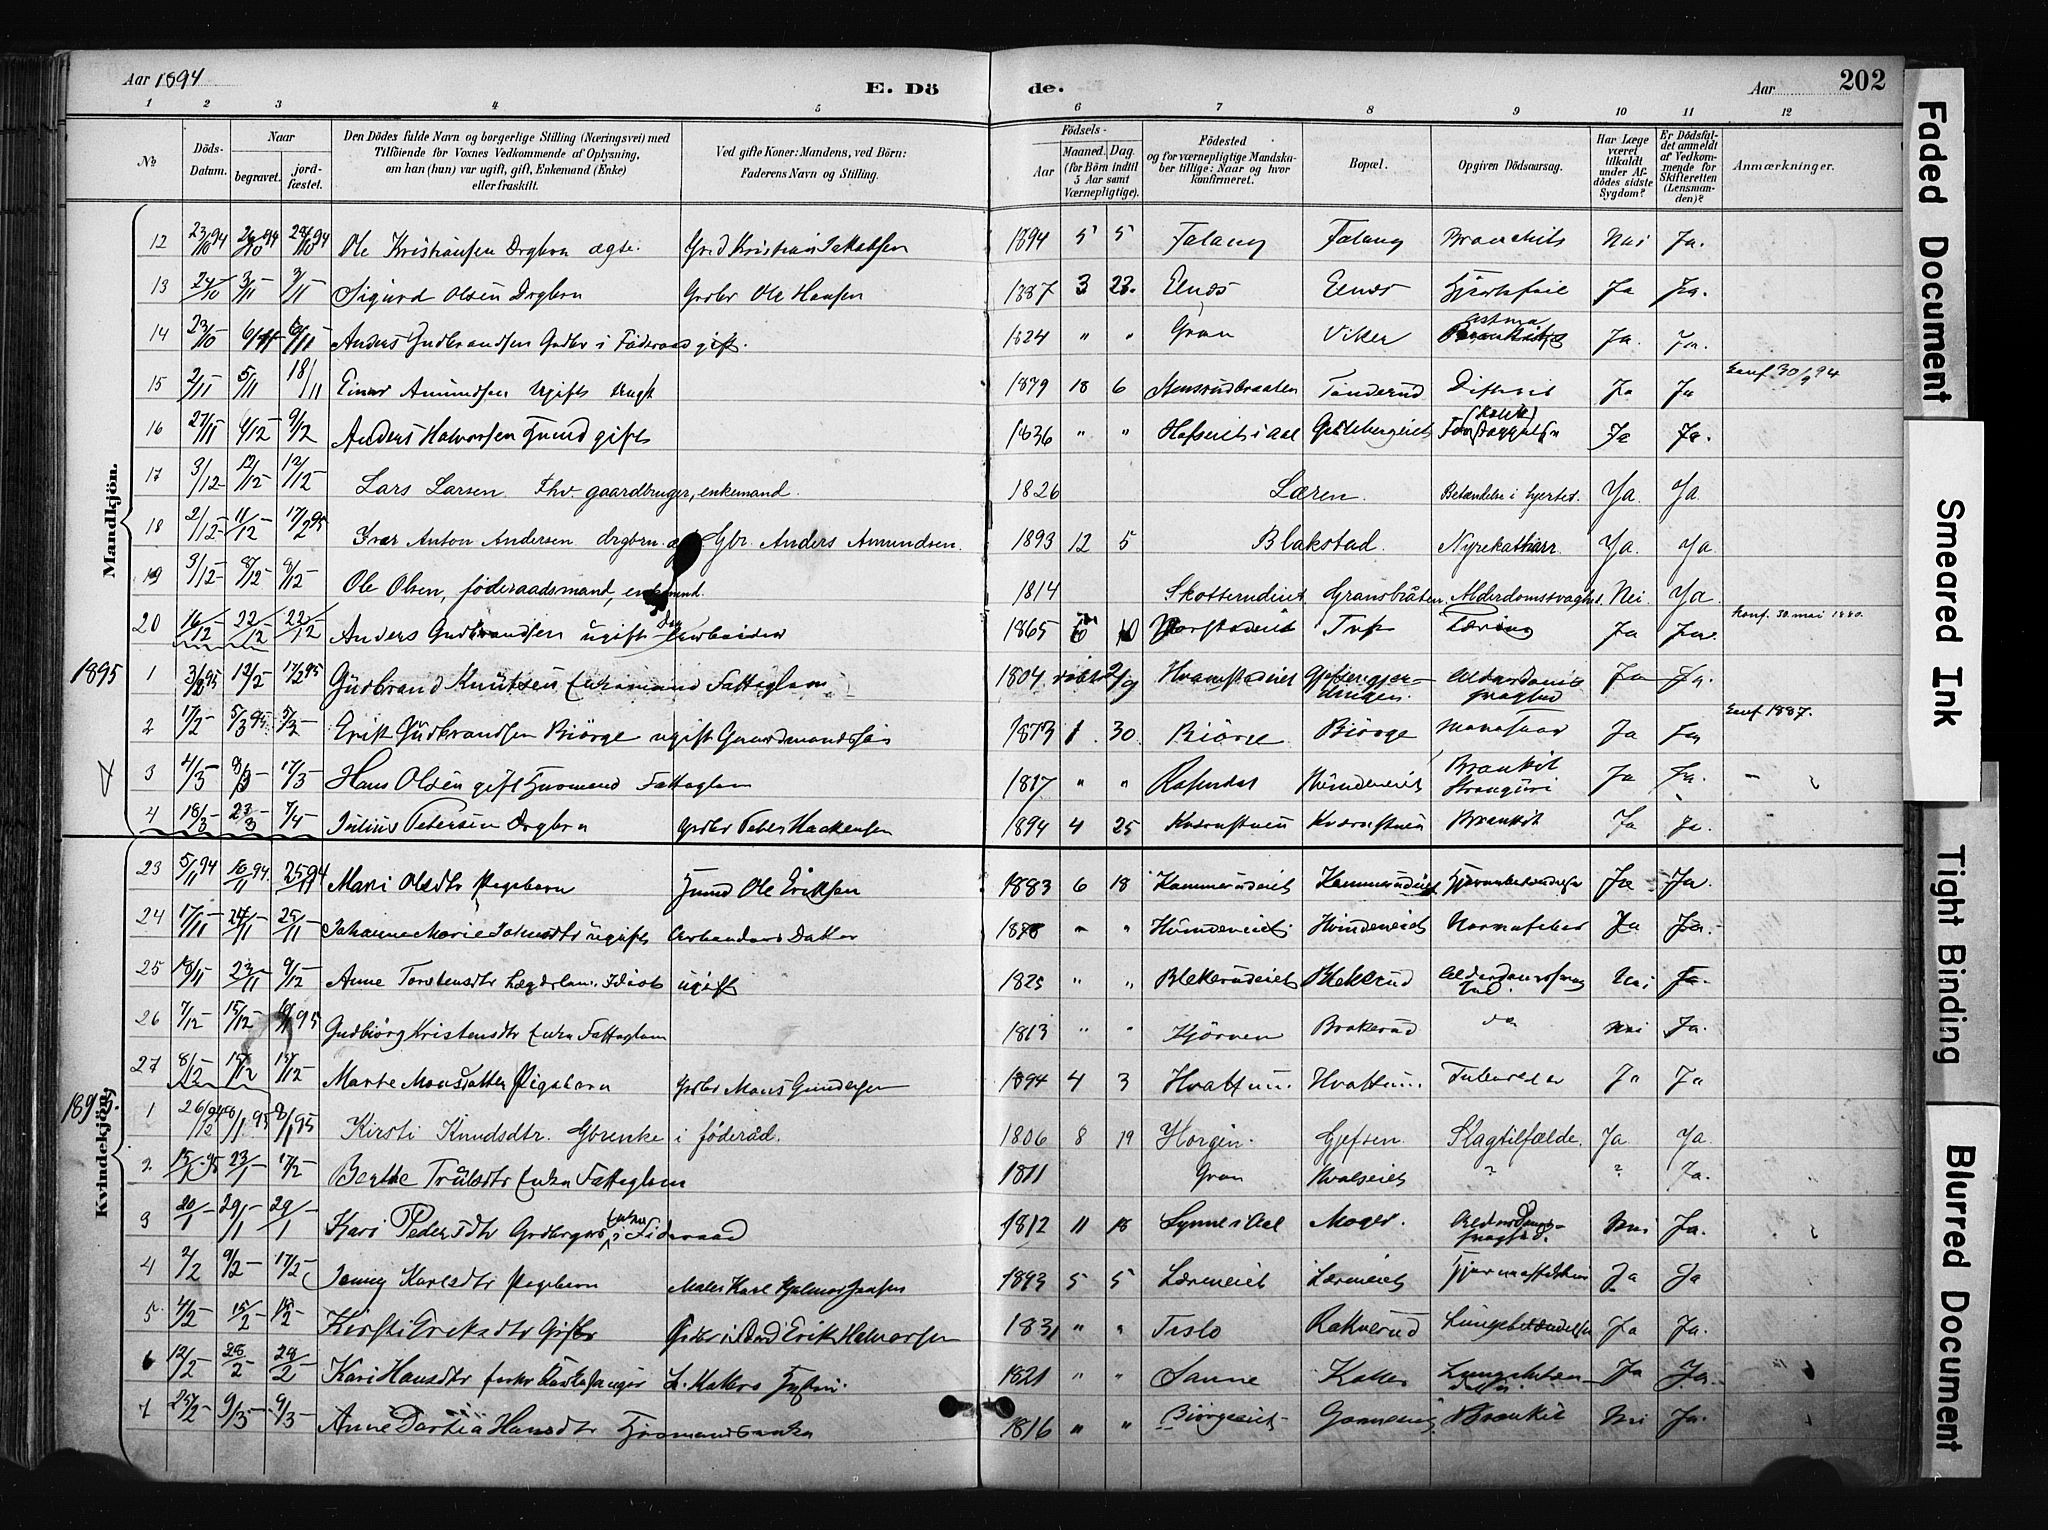 Aar 1894
E. Dö
de.
Aar
202
1 2 3 4 5 6 7 8 9 10 11 12
No
Döds-Datum.
Naar
begravet.
jord-fæstet.
Den Dödes fulde Navn og borgerlige Stilling (Næringsvei) med
Tilföiende for Voxnes Vedkommende af Oplysning,
om han (hun) var ugift, gift, Enkemand (Enke)
eller fraskilt.
Ved gifte Koner: Mandens, ved Börn:
Faderens Navn og Stilling.
Födsels-
Aar
Maaned. Dag
(for Börn indtil
5 Aar samt
Værnepligtige).
Födested
og for værnepligtige Mandska-
ber tillige: Naar og hvor
konfirmeret.
Bopæl.
Opgiven Dödsaarsag.
Har Læge
været
tilkaldt
under Af-
dödes sidste
Sygdom?
Er Dödsfal-
det anmeldt
af Vedkom-
mende for
Skifteretten
(Lensman-
den)?
Anmærkninger.
Mandkjön.
12 23/10 94 Ole Kristiansen Drgbrn ægte. Grd Kristian Jakobsen 1894 5 5 Falang Falang Bronchits Nei Ja.
13 24/10 3/11 3/11 Sigurd Olsen Drgbrn Grdbr Ole Hansen 1887 3 23. Elnæs Elnæs Hjertefeil Ja Ja.
14 23/10 6/11 6/11 Anders Gudbrandsen Grdbr i Föderaad gift. 1824 " " Gran Viker astma Ja. Ja.
15 2/11 5/11 18/11 Einar Amundsen ugift 1879 18 6 Monsrudbraaten Tanderud Difterit Ja Ja Conf. 30/9 94
16 27/11 6/12 9/12 Anders Halvorsen Husmd gift 1836 " " Hofseiet i Aal Ja Ja.
17 3/12 12/12 12/12 Lars Larsen. Fhv. gaardbruger, enkemand. 1826 Læren. Betændelse i hjertet. Ja Ja.
18 2/12 11/12 17/2 95 Ivar Anton Andersen drgbrn. Gbr. Anders Amundsen. 1893 12 5 Blakstad. Nyrekatharr. Ja. Ja
19 3/12 8/12 8/12 Ole Olsen, föderaadsmand, enkemand. 1814 Skotterudeiet Gransbråten. Alderdomssvaghet. Nei Ja.
20 16/12 22/12 22/12 Anders Gudbrandsen ugift Arbeider 1865 Tuf Tæring Ja Ja. Konf. 30. mai 1880.
1895
1 3/2 95 12/2 17/2 95 Gudbrand Knutsen Enkemand Fattiglem 1804 2/9 Hvamstadeiet Ja Ja.
2 17/2 5/3 95 5/3 Erik Gudbrandsen Biörge ugift Gaardmandssön 1873 1 30. Biörge Biörge Ja Ja Conf. 1887.
3 4/3 8/3 17/3 Hans Olsen gift Husmand Fattiglem 1817 " " Rosendal Hvindeneiet Bronkit Ja Ja.
4 18/3 23/3 7/4 Julius Petersen Drgbrn Grdbr Peter Hackensen 1894 4 25 Kværnstuen Kværnstuen Bronkit Ja Ja.
Kvindekjön.
23 5/11 94 10/11 94. 25/11 94 Mari Olsdtr Pigebarn Husmd Ole Eriksen 1883 6 18 Kammerudeiet Kammerudeiet Ja Ja.
24 17/11 24/11 25/11 Johanne Marie ugift Arbeiders Datter " Hvindeneiet Hvindeneiet Nervefeber Ja Ja.
25 18/11 23/11 9/12 Anne Torstensdtr Lægdslem. Idiot ugift 1825 " " Blekerudeiet Blekerud Alderdomssvaghed. Nei Ja.
26 7/12 15/12 95 Gudbjörg Kristensdtr Enke Fattiglem 1813 " " Hjörven Brakerud do Nei Ja.
27 8/12 15/12 15/12 Marte Monsdatter Pigebarn Grdbr Mons Gundersen 1894 4 3 Hvattum. Hvattum. Tuberkler Ja Ja
1895
1 26/12 94 8/1 95 8/1 95 Kirsti Knudsdtr. Gbrenke i föderåd. 1806 8 19 Horgin. Gjefsen. Slagtilfælde. Ja Ja.
2 15/1 95 23/1 17/2 Berthe Trulsdtr Enke Fattiglem 1811 Gran Hvaleeiet ? ? Ja.
3 20/1 29/1 29/1 Kari Pedersdtr Grdbrgers Enke i Föderaad 1812 11 18 Lynne i Aal Moger. Alderdomssvaghed. Nei Ja.
4 2/2 9/2 17/2 Jenny Karlsdtr Pigebarn Maler Karl Hjalmar Jensen 1893 5 5 Læreneiet Læreneiet Ja Ja
5 4/2 15/2 15/2 Kirsti Eriksdtr Gift Erik Halvorsen 1831 " " Tislo Raknerud Lungebetændelse Ja Ja.
6 12/2 28/2 28/2 Kari Hansdtr L. Kokers Hustru. 1821 " " Sanne Koker Lungebetændelse Ja Ja.
7 25/2 9/3 9/3 Anne Dortea Hansdtr Husmandsenke 1816 " " Biörgeeiet Bronkit Nei Ja.
Faded Document
Smeared Ink
Tight Binding
Blurred Document